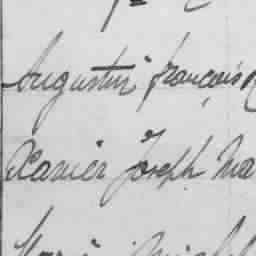 Augustin françois
Xavier Joseph Ma